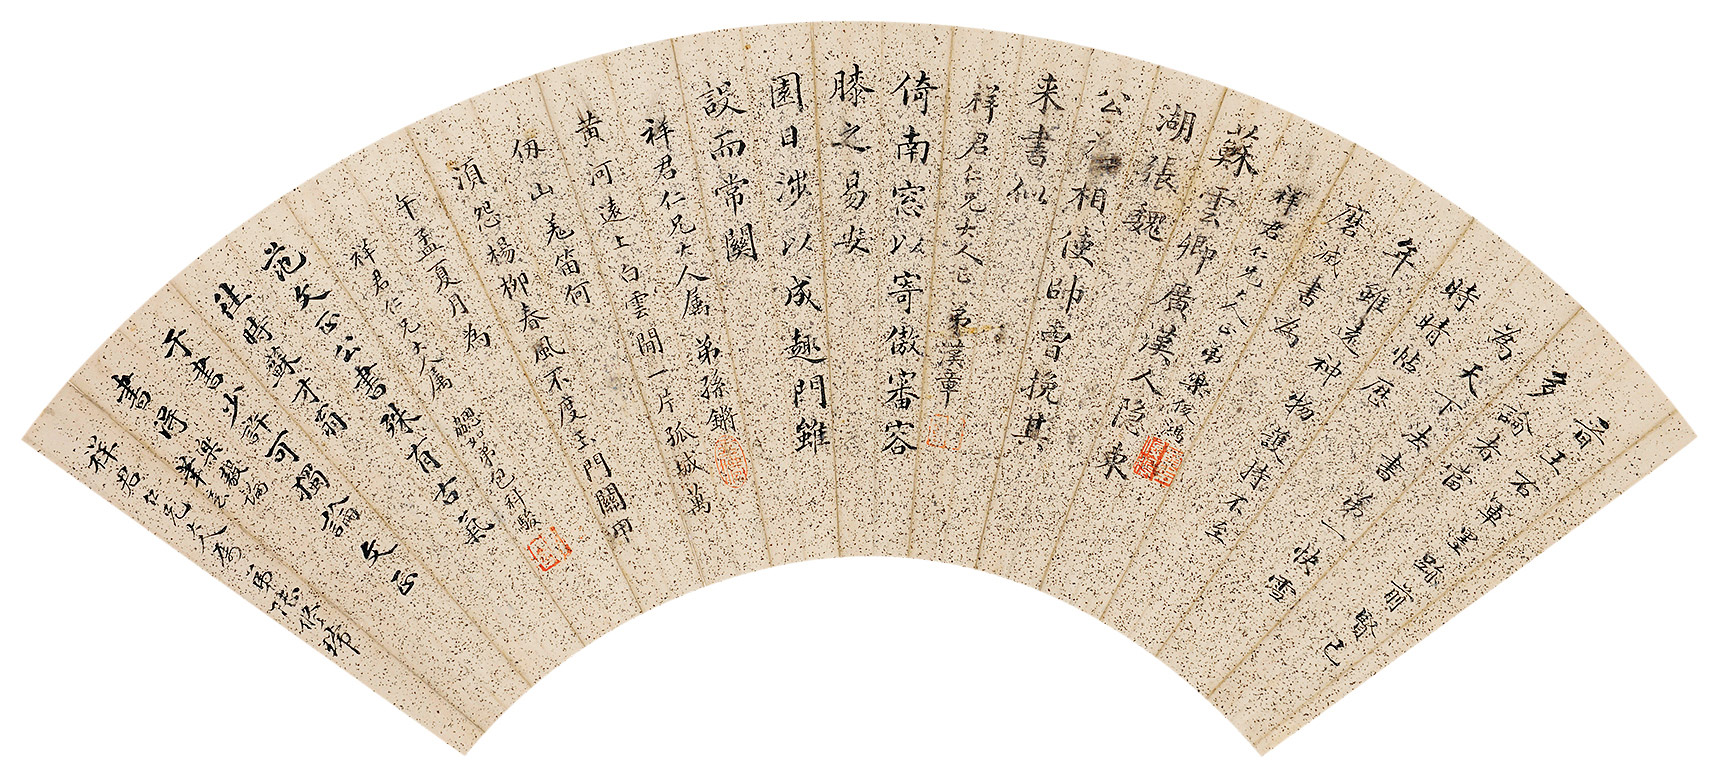 晉王右軍墨跡前賢已
多論者當
為天下法書第一快雪
時晴帖歷
年雖遠神物護持不至
磨滅書為
祥君仁兄大人正弟樂俊鴻
蘇雲卿廣漢人隐東
湖張魏
公為相使帥曾挽其
来書似
祥君仁兄大人正 弟漢章
倚南窓以寄傲審容
膝之易安
園日涉以成趣門雖
設而常關
祥君仁兄大人属 弟孫鏘
黄河遠上白雲間一片孤城萬
仞山羌笛何
須怨楊柳春風不度玉門關甲
午孟夏月為
祥君仁兄大人属 弟包科駿
范文正公書殊有古氣
往時蘇才翁
于書少許可獨論文正
書得樂毅論筆法
祥君仁兄大人属 弟